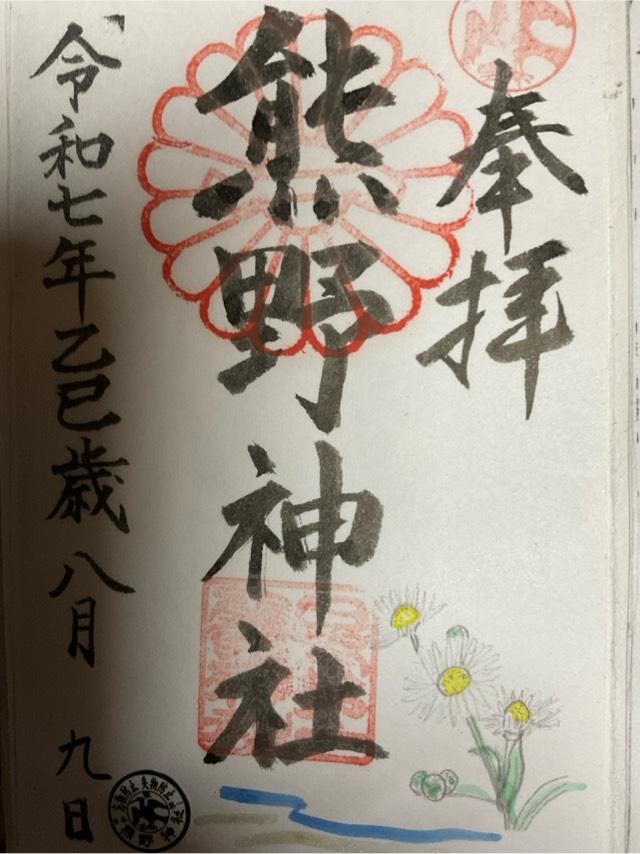 奉拝
熊野神社
令和七年乙巳歳八月九日